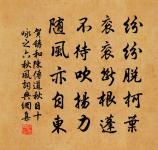 紛紛脫柯葉
衮衮斷根蓬
不待吹揚力
隨風亦自東
賀鑄和陳傳道秋日十
詠之六秋風詞典網集